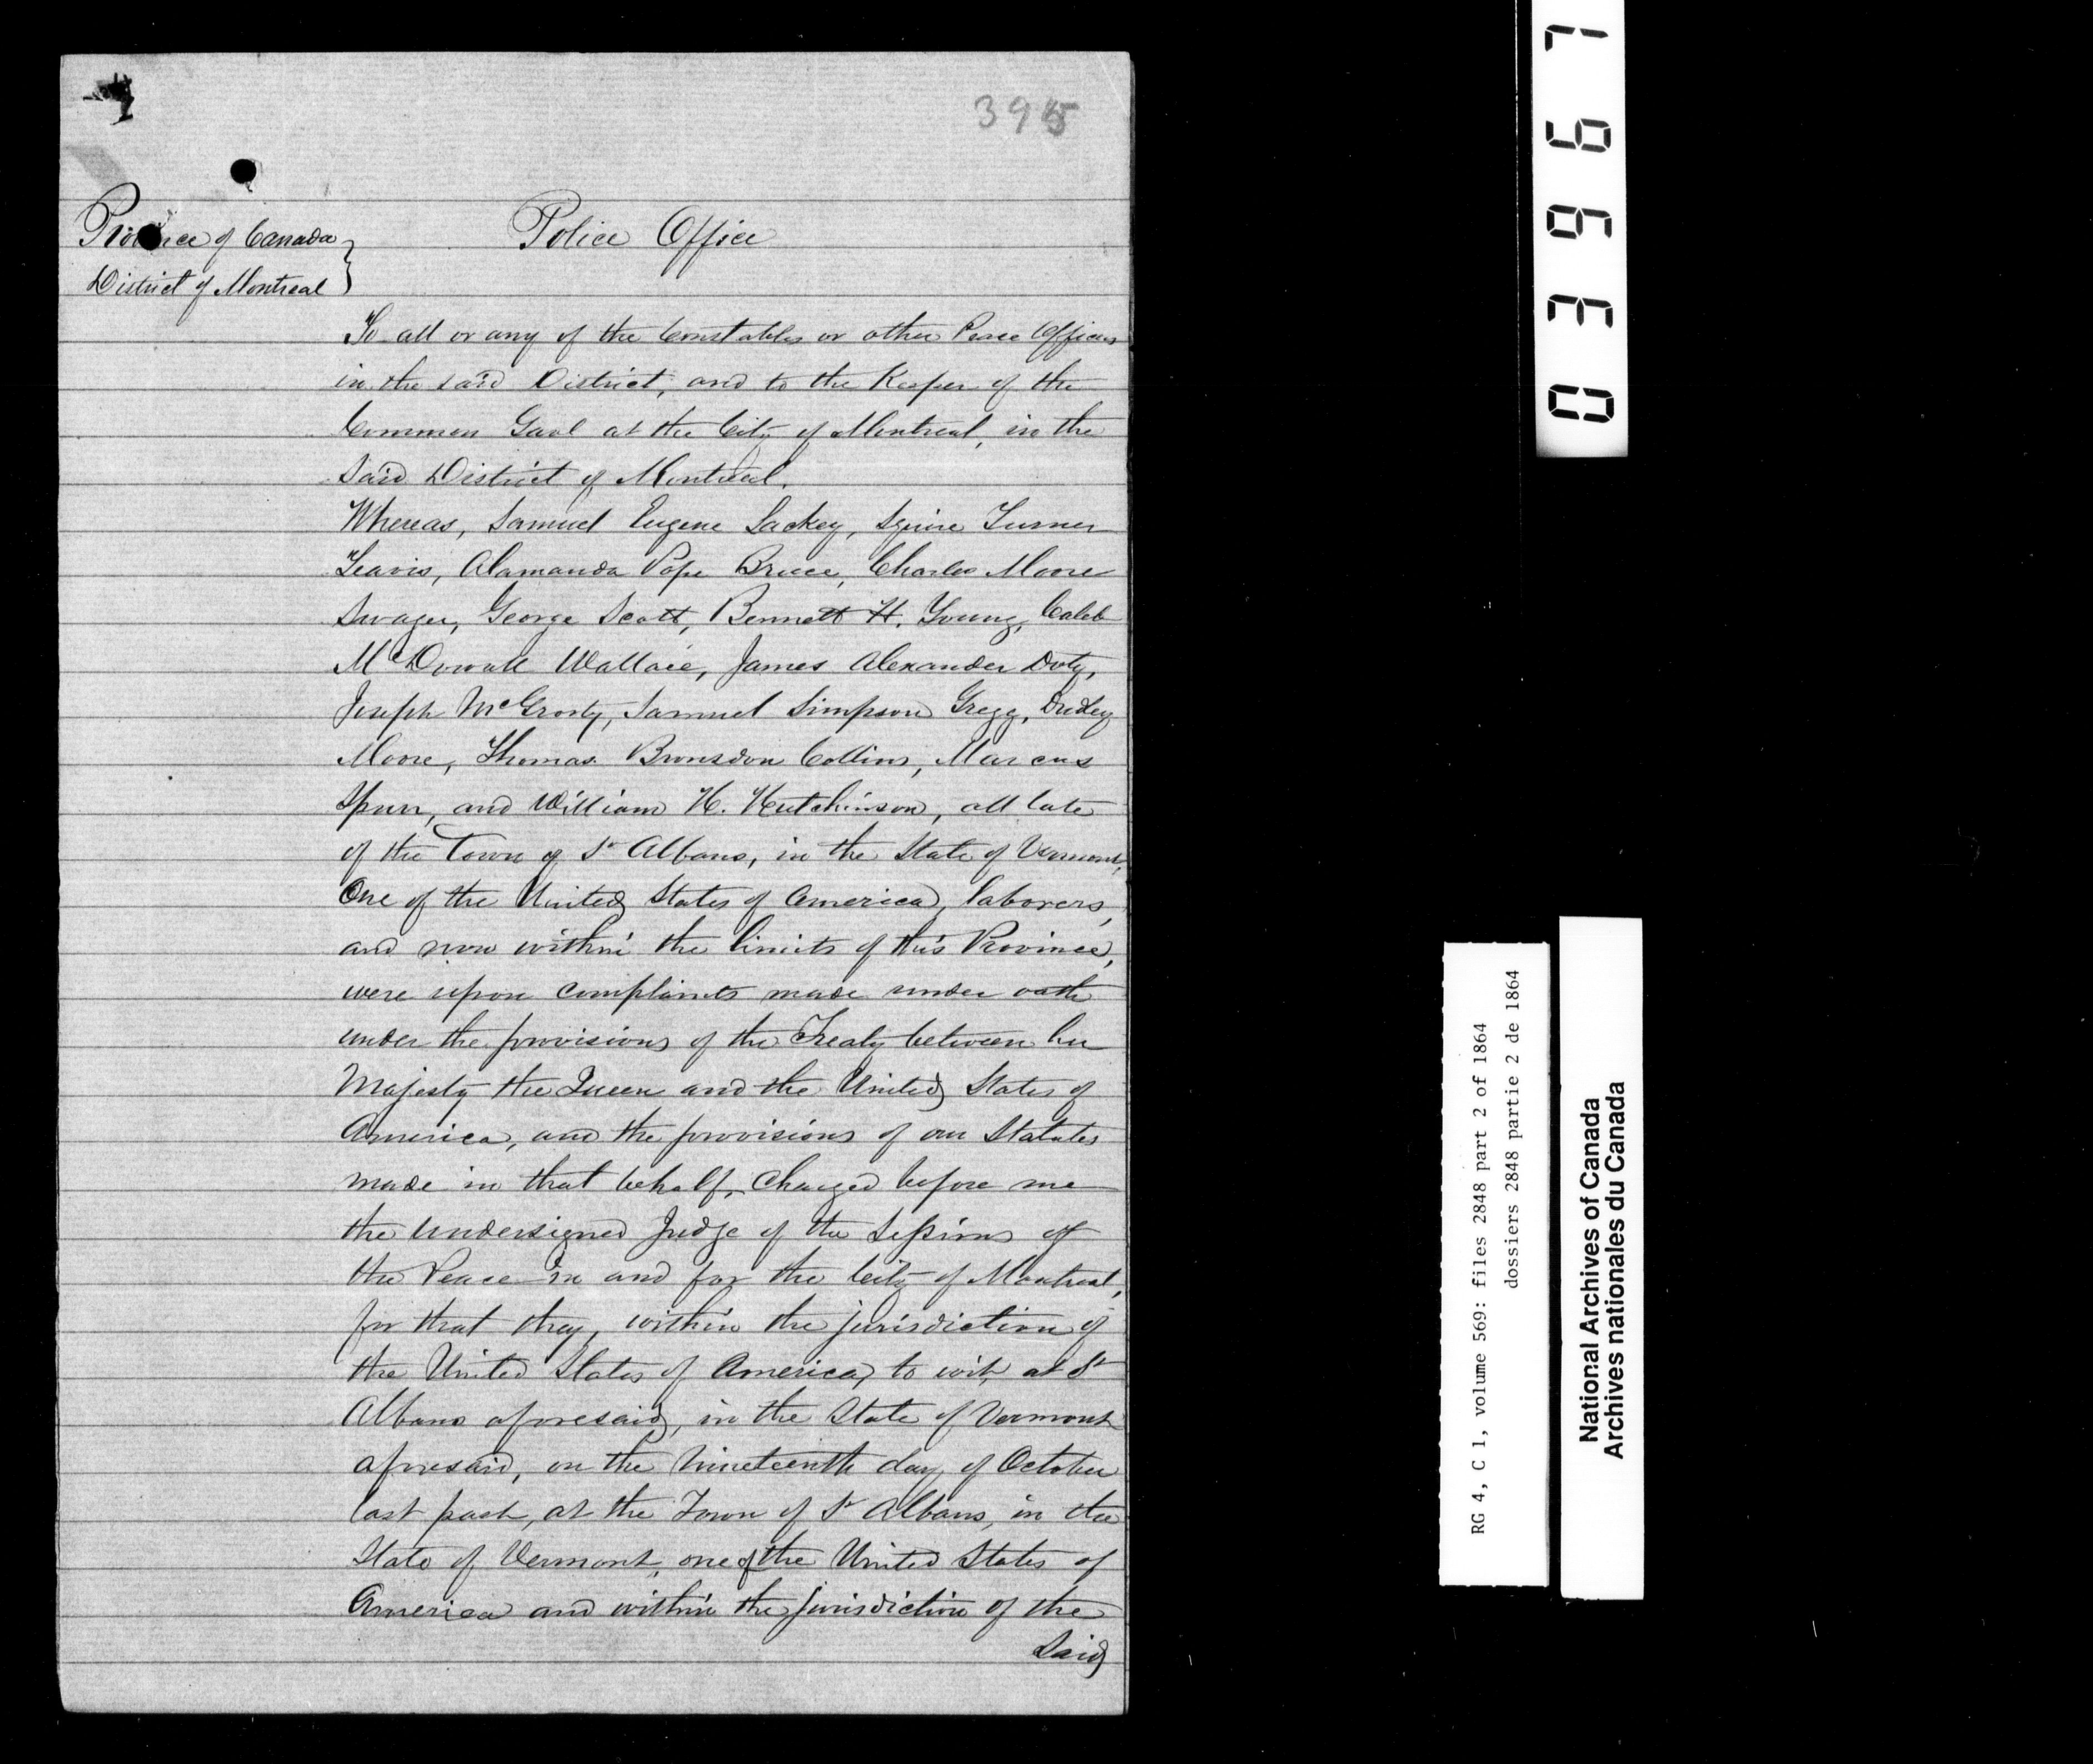 395
Province of Canada
District of Montreal
Police Office
To all or any of the Constables or other Peace Officers
in the said District, and to the Keeper of the
Common Gaol at the City of Montreal, in the
Said District of Montreal.
Whereas, Samuel Eugene Lackey, Squire Turner
Teavis, Alamanda Pope Bruce, Charles Moore
Swager, George Scott, Bennett H. Young, Caleb
McDowall Wallace, James Alexander Doty,
Joseph McGrorty, Samuel Simpson Gregg, Dudley
Moore, Thomas Bronsdon Collins, Marcus
Spurr, and William H. Hutchinson, all late
of the Town of St Albans, in the State of Vermont,
One of the United States of America, laborers,
and now within the limits of this Province,
were upon complaints made under oath
under the provisions of the Treaty between her
Majesty the Queen and the United States of
America, and the provisions of our Statutes
made in that behalf, charged before me
the undersigned Judge of the Sessions of
the Peace in and for the City of Montreal,
for that they, within the jurisdiction of
the United States of America, to wit, at St
Albans aforesaid, in the State of Vermont
aforesaid, on the nineteenth day of October
last past, at the Town of St Albans, in the
State of Vermont, one of the United States of
America and within the jurisdiction of the
Said
03967
RG 4, C 1, volume 569: files 2848 part 2 of 1864
dossiers 2848 partie 2 de 1864
National Archives of Canada
Archives nationales du Canada